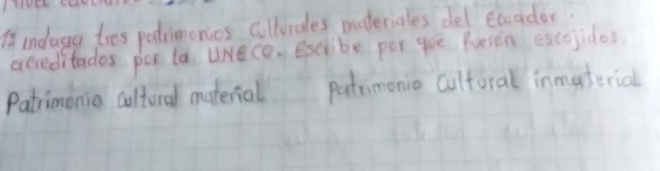 1º indaga tres patrimonios Culturales materiales del Ecuador.
acreditados por la UNECO. Escribe por que fuerón escojidos.
Patrimonio cultural material Patrimonio Cultural inmaterial